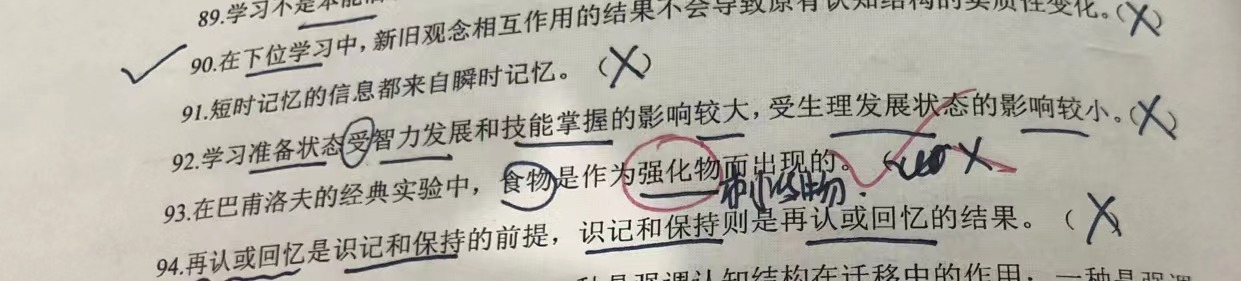 89.学习不是本能
90.在下位学习中，新旧观念相互作用的结果不会导致原有认知结构的实质性变化。（X）
91.短时记忆的信息都来自瞬时记忆。（X）
92.学习准备状态受智力发展和技能掌握的影响较大，受生理发展状态的影响较小。（X）
93.在巴甫洛夫的经典实验中，食物是作为强化物而出现的。（ X
94.再认或回忆是识记和保持的前提，识记和保持则是再认或回忆的结果。（X）
种是强调认知结构在迁移中的作用；一种是强调